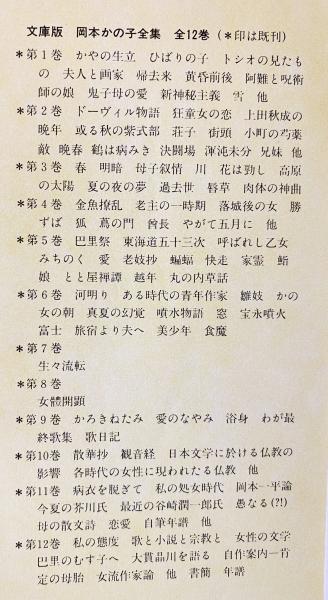 文庫版　岡本かの子全集　全12巻（＊印は既刊）
＊第1巻　かやの生立　ひばりの子　トシオの見たも
の　夫人と画家　帰去来　黄昏前後　阿難と呪術
師の娘　鬼子母の愛　新神秘主義　雪　他
＊第2巻　ドーヴィル物語　狂童女の恋　上田秋成の
晩年　或る秋の紫式部　荘子　街頭　小町の芍薬
敵　晩春　鶴は病みき　決闘場　渾沌未分　兄妹　他
＊第3巻　春　明暗　母子叙情　川　花は勁し　高原
の太陽　夏の夜の夢　過去世　唇草　肉体の神曲
＊第4巻　金魚撩乱　老主の一時期　落城後の女　勝
ずば　狐　蔦の門　酋長　やがて五月に　他
＊第5巻　巴里祭　東海道五十三次　呼ばれし乙女
みちのく　愛　老妓抄　蝙蝠　快走　家霊　鮨
娘　とと屋禅譚　越年　丸の内草話
＊第6巻　河明り　ある時代の青年作家　雛妓　かの
女の朝　真夏の幻覚　噴水物語　窓　宝永噴火
富士　旅宿より夫へ　美少年　食魔
＊第7巻
生々流転
＊第8巻
女體開顯
＊第9巻　かろきねたみ　愛のなやみ　浴身　わが最
終歌集　歌日記
＊第10巻　散華抄　観音経　日本文学に於ける仏教の
影響　各時代の女性に現われたる仏教　他
＊第11巻　病衣を脱ぎて　私の処女時代　岡本一平論
今夏の芥川氏　最近の谷崎潤一郎氏　愚なる(?!)
母の散文詩　恋愛　自筆年譜　他
＊第12巻　私の態度　歌と小説と宗教と　女性の文学
巴里のむす子へ　大貫品川を語る　自作案内―肯
定の母胎　女流作家論　他　書簡　年譜